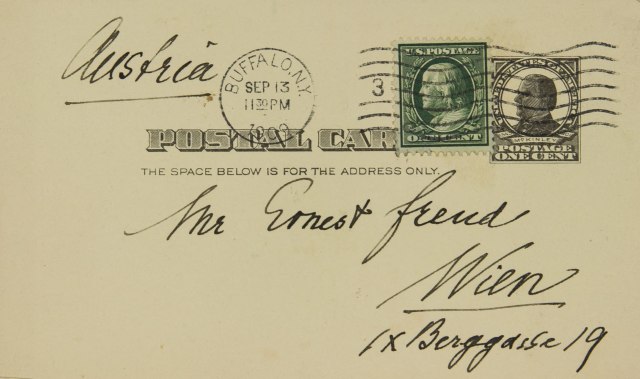 Austria
BUFFALO, N.Y.
SEP 13
11 30 PM
1909
3
U.S. POSTAGE
ONE CENT
MCKINLEY
POSTAGE
ONE CENT
POSTAL CAR
THE SPACE BELOW IS FOR THE ADDRESS ONLY.
Mr Ernest Freud
Wien
IX Berggasse 19